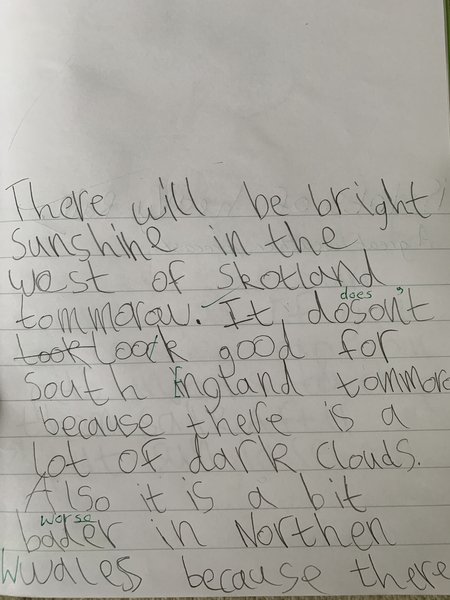 There will be bright
sunshine in the
west of skotland
tommorow. It doson't
does
took look good for
south England tommoro
because there is a
lot of dark clouds.
Also it is a bit
worse
bader in Northen
Wwales because there